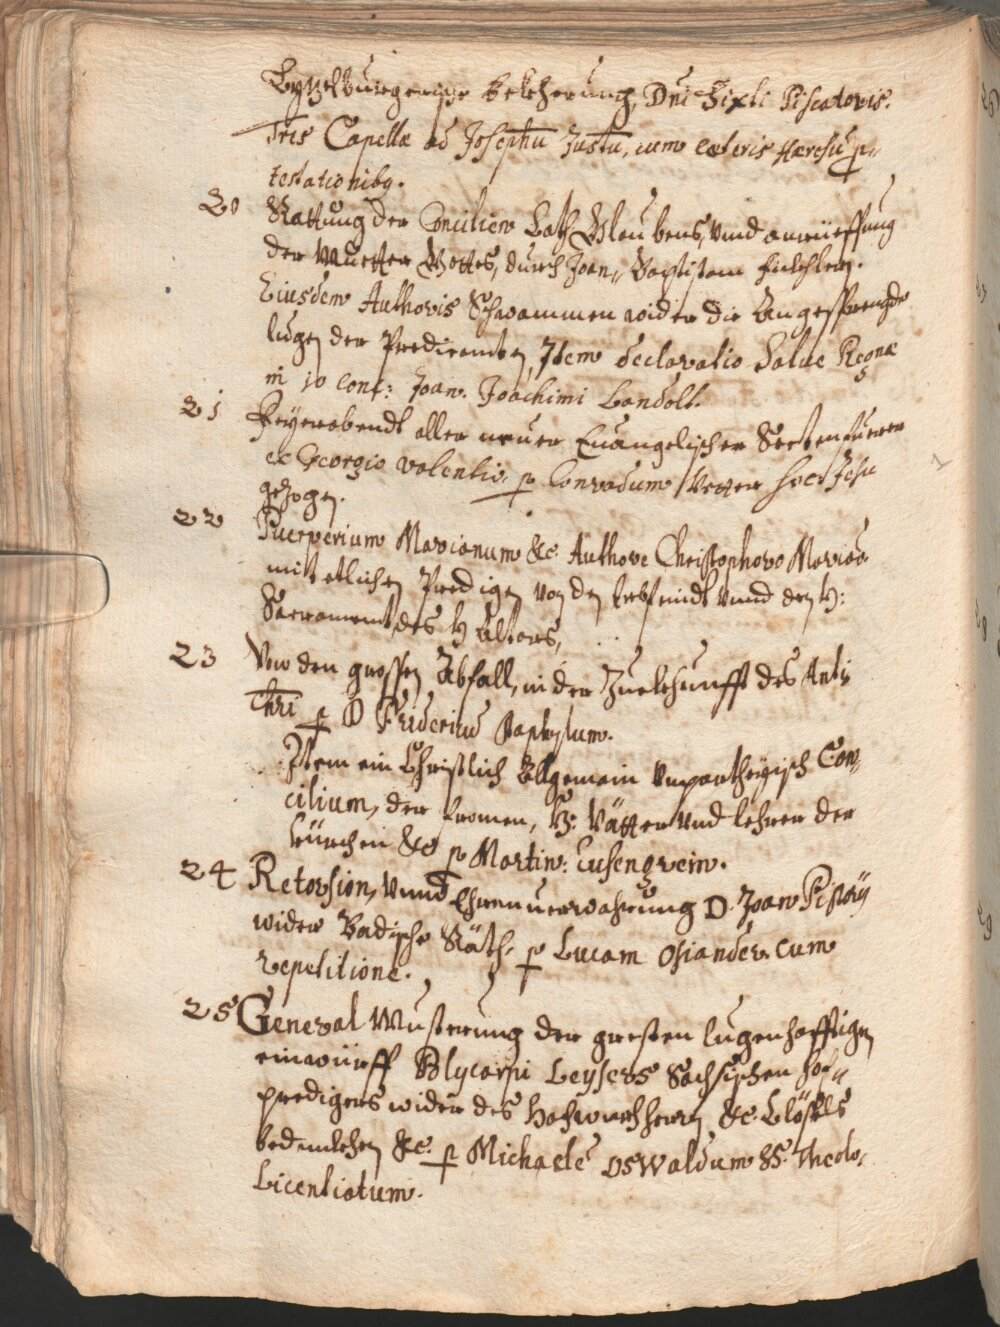 Lytzelburgerische bekherung, Dni Sixti Piscatoris.
Tres Capellæ ad Josephu Justu, cum ceteris Hæresu p-
testationibq.
20 Rattung der Concilien Catz Glaubens, vnnd anrüeffung
der Muetter Gottes, durch Joan. Baptistam ficklern.
Eiusdem Authoris Schwammen wider die Angesprengde
lugen der Predicanten, Item declaratio Salue Regnæ
in 10 Conc: Joan. Joachimi Landolt.
21 Feyerabendt aller neuer Euangelischen Sectenfuerer
ex Georgio valentis p Conradum Vetter Soc: Jesu
gezogen.
22 Puerperium Marianum &c. Authore Christophoro Mariano
mitt etlichen Predigen von den Erbfeindt vnnd den H:
Sacrament des H Altars,
23 Von den grossen Abfall, in der Zuekhunfft des Anti
Chri p D Fridericu Staphylum.
Item ein Christlich Allgemain Vnpartheyisch Con-
cilium, der fromen, H: Vätter vnd lehrer der
kürchen &c p Martin: Eusengrein.
24 Retorsion, vnnd Ehrnuerwahrung D. Joan Pistorij
wider Badische Räth. p Lucam Osiander. cum
repetitione.
25 General Musterung der gresten lugenhafftigen
einwürff Polycarpi Leysers Sachsischen Hof-
predigers wider des Hochwürdh herrn &c. Clösels
bedenckhen &c. p Michaele Oswaldum SS. Theolo.
Licentiatum.